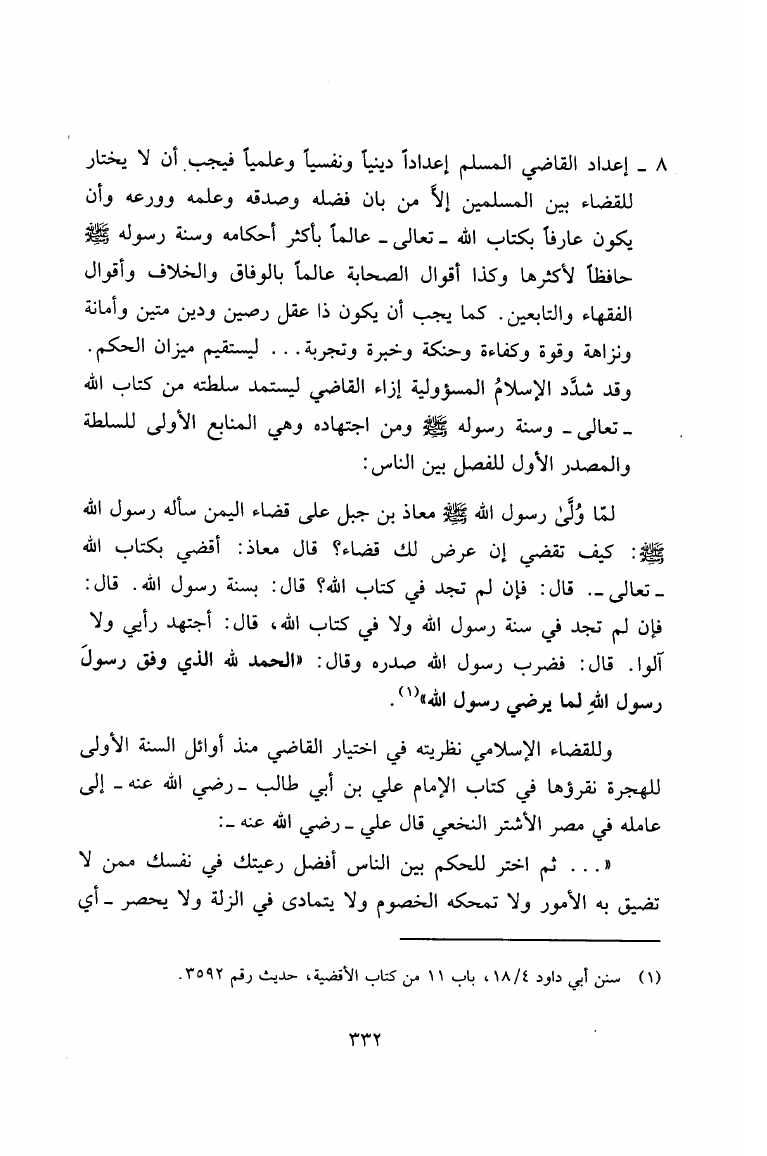 ٨ ـ إعداد القاضي المسلم إعداداً دينياً ونفسياً وعلمياً فيجب أن لا يختار
للقضاء بين المسلمين إلاَّ من بان فضله وصدقه وعلمه وورعه وأن
يكون عارفاً بكتاب الله ـ تعالى ـ عالماً بأكثر أحكامه وسنة رسوله ﷺ
حافظاً لأكثرها وكذا أقوال الصحابة عالماً بالوفاق والخلاف وأقوال
الفقهاء والتابعين. كما يجب أن يكون ذا عقل رصين ودين متين وأمانة
ونزاهة وقوة وكفاءة وحنكة وخبرة وتجربة... ليستقيم ميزان الحكم.
وقد شدَّد الإسلامُ المسؤولية إزاء القاضي ليستمد سلطته من كتاب الله
ـ تعالى ـ وسنة رسوله ﷺ ومن اجتهاده وهي المنابع الأولى للسلطة
والمصدر الأول للفصل بين الناس:
لمّا وُلَّىٰ رسول الله ﷺ معاذ بن جبل على قضاء اليمن سأله رسول الله
ﷺ: كيف تقضي إن عرض لك قضاء؟ قال معاذ: أقضي بكتاب الله
ـ تعالى ـ. قال: فإن لم تجد في كتاب الله؟ قال: بسنة رسول الله. قال:
فإن لم تجد في سنة رسول الله ولا في كتاب الله، قال: أجتهد رأيي ولا
آلوا. قال: فضرب رسول الله صدره وقال: «الحمد لله الذي وفق رسولَ
رسول اللهِ لما يرضي رسول الله»(١).
وللقضاء الإسلامي نظريته في اختيار القاضي منذ أوائل السنة الأولى
للهجرة نقرؤها في كتاب الإمام علي بن أبي طالب ـ رضي الله عنه ـ إلى
عامله في مصر الأشتر النخعي قال علي ـ رضي الله عنه ـ:
«... ثم اختر للحكم بين الناس أفضل رعيتك في نفسك ممن لا
تضيق به الأمور ولا تمحكه الخصوم ولا يتمادى في الزلة ولا يحصر ـ أي
(١) سنن أبي داود ١٨/٤، باب ١١ من كتاب الأقضية، حديث رقم ٣٥٩٢.
٣٣٢